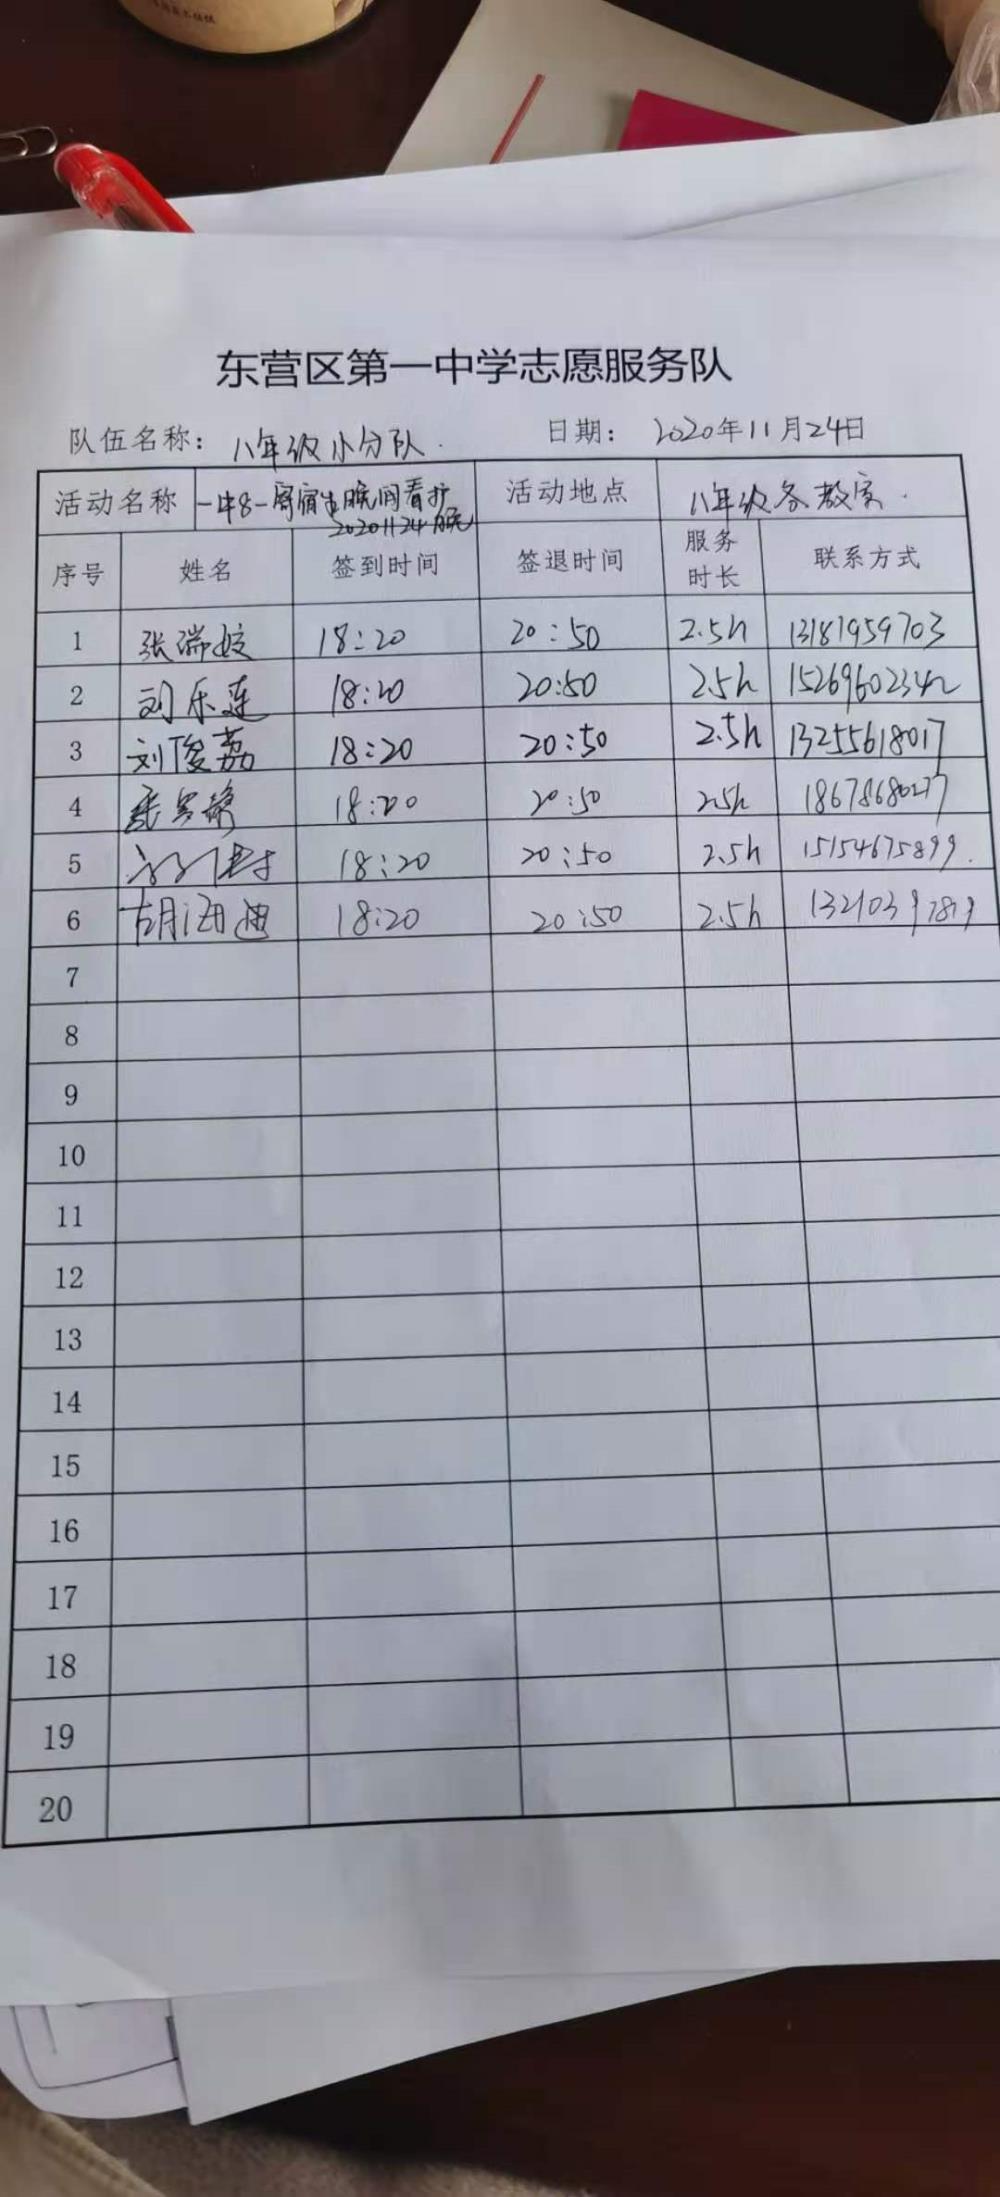 东营区第一中学志愿服务队
队伍名称： 八年级小分队. 日期： 2020年11月24日
活动名称 一中8一寄宿生晚间看护 20201124晚 活动地点 八年级各教室.
序号 姓名 签到时间 签退时间 服务时长 联系方式
1 张瑞姣 18:20 20:50 2.5h 13181959703
2 刘乐莲 18:20 20:50 2.5h 15269602342
3 刘俊荔 18:20 20:50 2.5h 13255618017
4 18:20 20:50 2.5h 18678680277
5 18:20 20:50 2.5h 15154675899.
6 胡海迪 18:20 20:50 2.5h
7
8
9
10
11
12
13
14
15
16
17
18
19
20